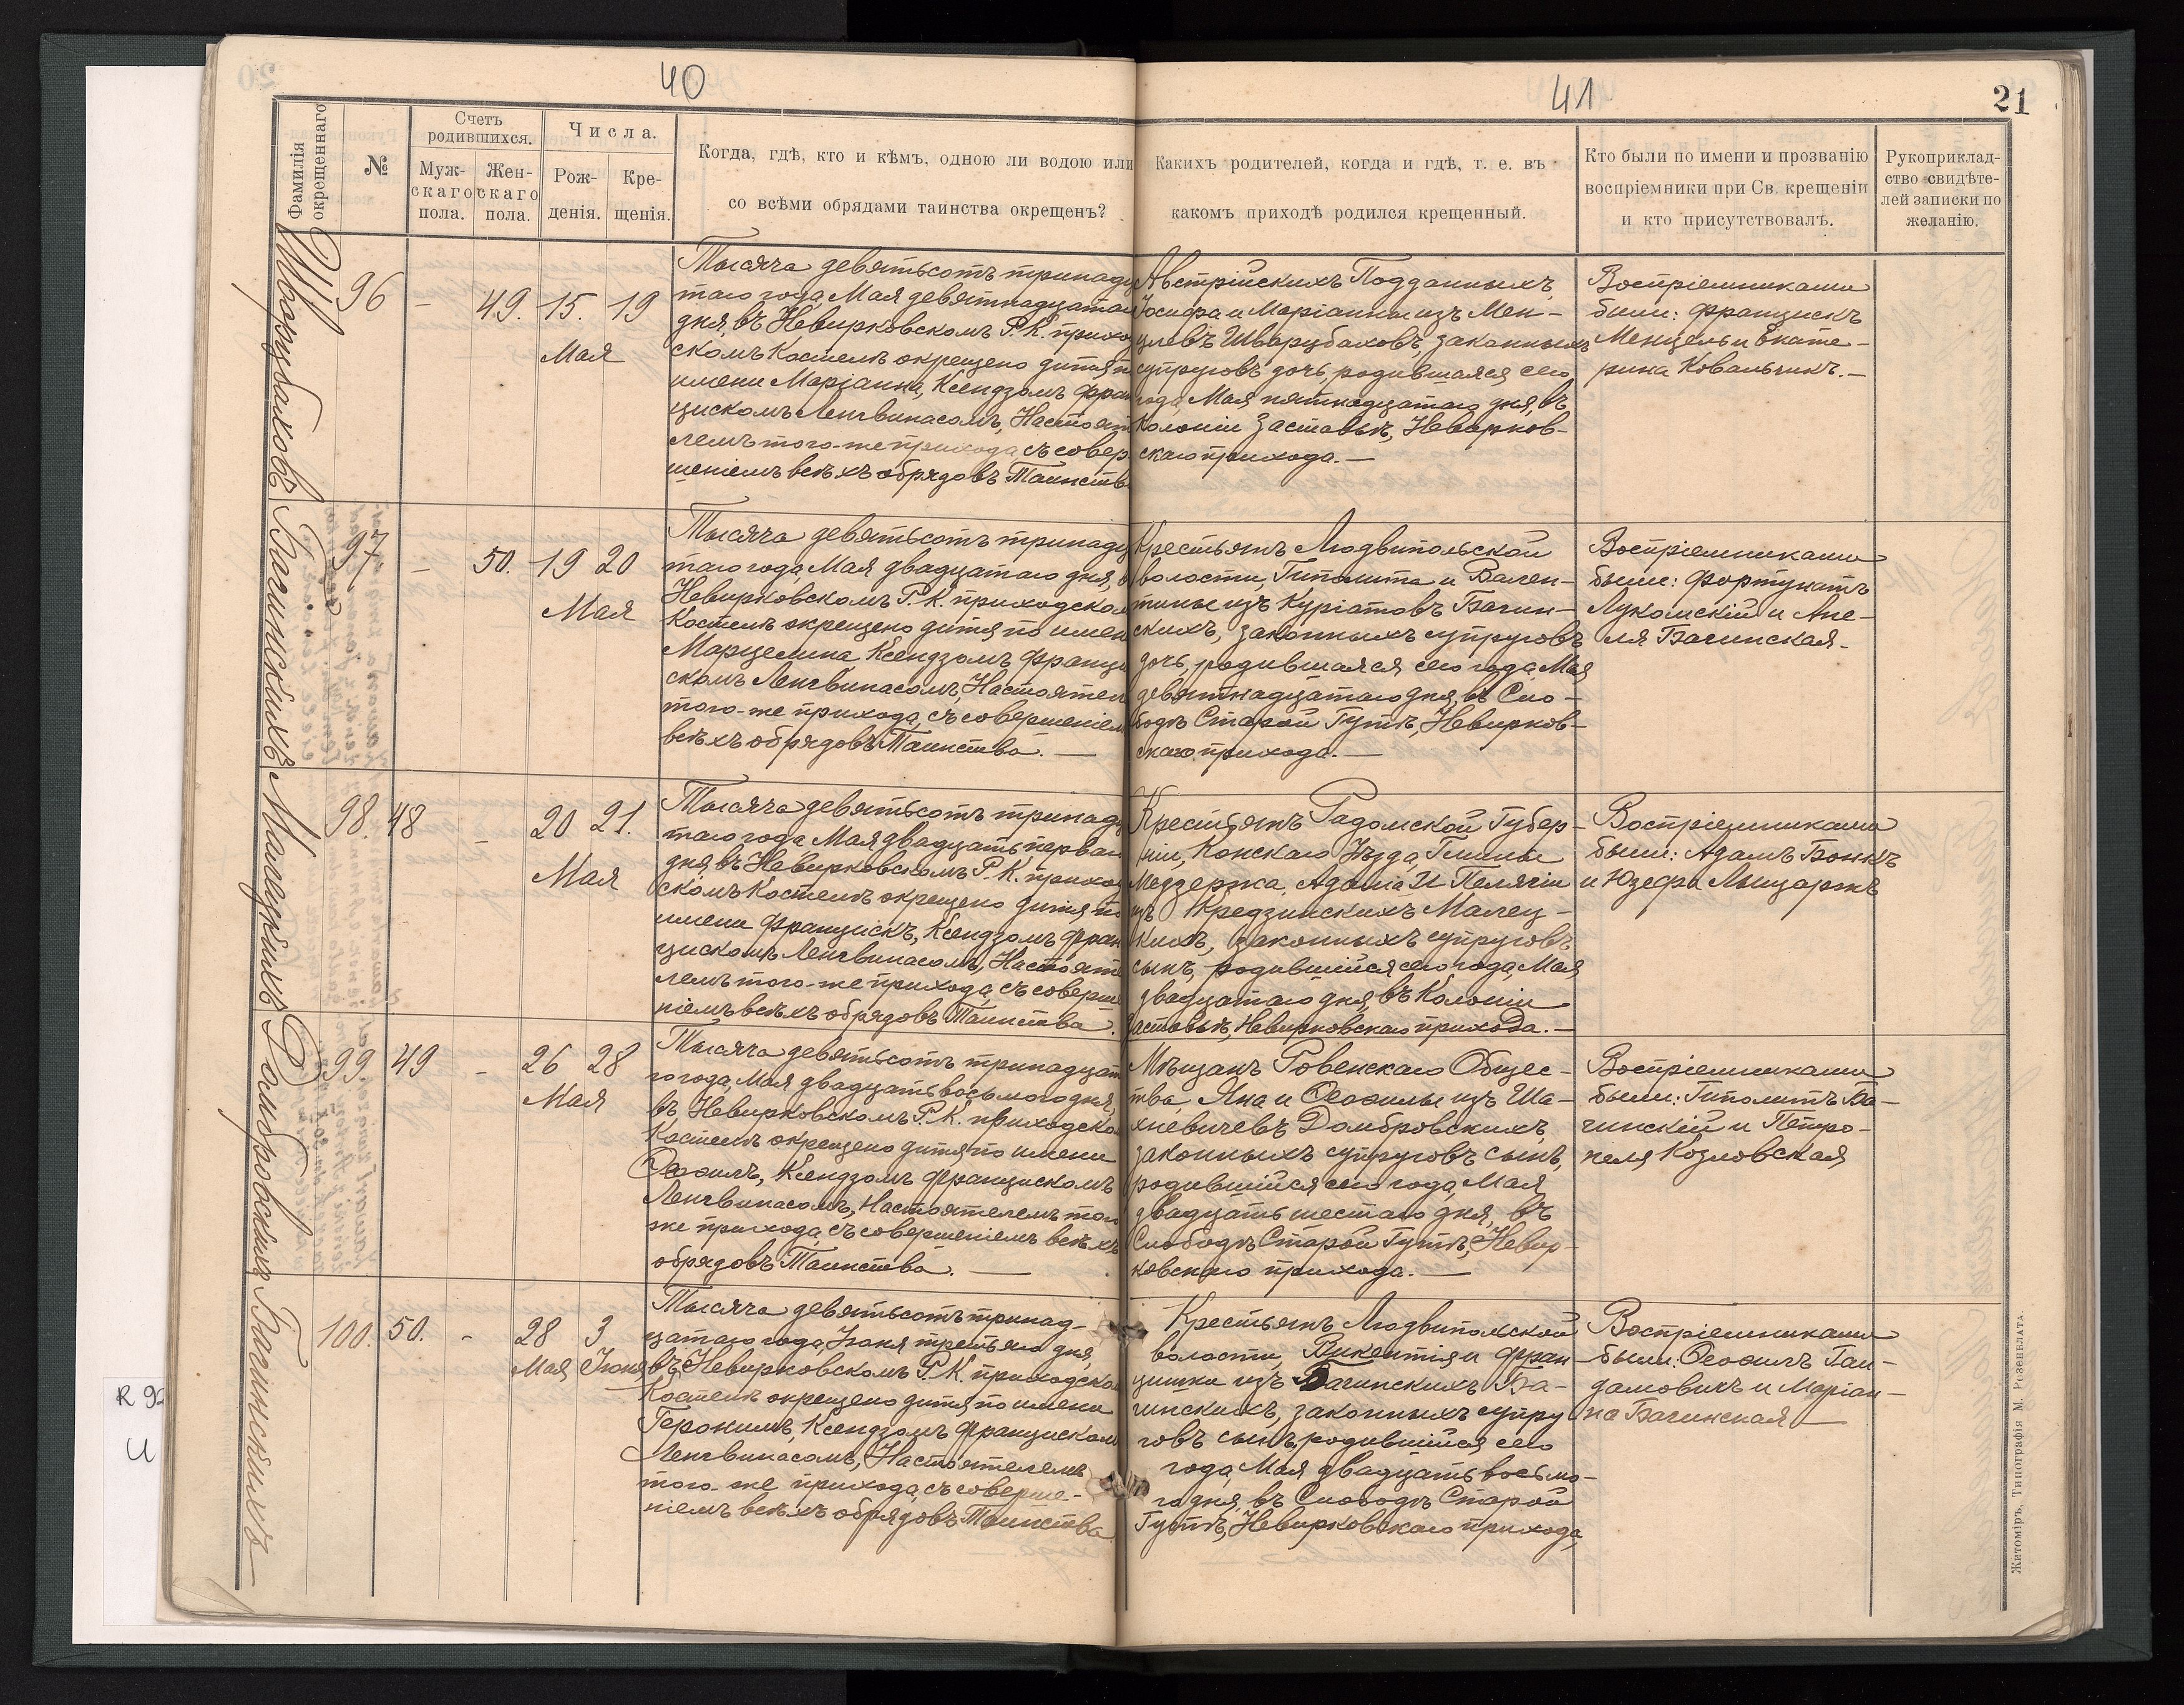 40
41
21
Фамилія
окрещеннаго
№
Счетъ
родившихся.
Муж-
скаго
пола.
Жен-
скаго
пола.
Числа.
Рож-
денія.
Кре-
щенія.
Когда, гдѣ, кто и кѣмъ, одною ли водою или
со всѣми обрядами таинства окрещенъ?
Какихъ родителей, когда и гдѣ, т. е. въ
какомъ приходѣ родился крещенный.
Кто были по имени и прозванію
воспріемники при Св. крещеніи
и кто присутствовалъ.
Рукоприклад-
ство свидѣте-
лей записки по
желанію.
Шварцбаховъ
96
-
49.
15.
19
Мая
Тысяча девятьсотъ тринадца
таго года, Мая девятнадцатаго
дня, въ Невирковскомъ Р. К. приход
скомъ Костелѣ окрещено дитя п
имени Маріанна, Ксендзомъ Фран
цискомъ Ленгвинасомъ, Настояте
лемъ того-же прихода, съ совер
шеніемъ всѣхъ обрядовъ Таинств
Австрійскихъ Подданныхъ,
Іосифа и Маріанны изъ Мен-
целевъ Шварцбаховъ, законныхъ
супруговъ дочь, родившаяся сего
года, Мая пятнадцатаго дня, въ
Колоніи Заставьѣ, Невирков-
скаго прихода.—
Воспріемниками
были: Францискъ
Менцель и Екате-
рина Ковальчикъ.—
Багинскихъ
97
-
50.
19
20
Мая
Тысяча девятьсотъ тринадц
таго года, Мая двадцатаго дня, в
Невирковскомъ Р. К. приходском
Костелѣ окрещено дитя по имен
Марцелина Ксендзомъ Франци
скомъ Ленгвинасомъ, Настоятел
того-же прихода, съ совершеніем
всѣхъ обрядовъ Таинства.—
Крестьянъ Людвипольской
волости, Гиполита и Вален-
тины изъ Куріатовъ Багин-
скихъ, законныхъ супруговъ
дочь, родившаяся сего года, Мая
девятнадцатаго дня, въ Сло-
бодѣ Старой Гутѣ, Невирков-
скаго прихода.—
Воспріемниками
были: Фортунатъ
Лукомскій и Ане-
ля Багинская.
Малецкихъ
98.
48
-
20
21.
Мая
Тысяча девятьсотъ тринадц
таго года Мая двадцать перваго
дня, въ Невирковскомъ Р. К. приход
скомъ Костелѣ окрещено дитя по
имени Францискъ, Ксендзомъ Фран
цискомъ Ленгвинасомъ, Настояте
лемъ того-же прихода, съ соверше
ніемъ всѣхъ обрядовъ Таинства.
Крестьянъ Радомской Губер-
ніи, Конскаго Уѣзда, Гмины
Адама и Пелягіи
изъ Малец-
кихъ, законныхъ супруговъ
сынъ, родившійся сего года, Мая
двадцатаго дня, въ Колоніи
Заставьѣ, Невирковскаго прихода.—
Воспріемниками
были: Адамъ Бонкъ
и Юзефа
Домбровскихъ
99.
49
-
26
28
Мая
Тысяча девятьсотъ тринадцат
го года, Мая двадцать восьмого дня,
въ Невирковскомъ Р. К. приходско
Костелѣ окрещено дитя по имени
Ѳеофилъ, Ксендзомъ Францискомъ
Ленгвинасомъ, Настоятелемъ того
же прихода, съ совершеніемъ всѣхъ
обрядовъ Таинства.—
Мѣщанъ Ровенскаго Общес-
тва, Яна и Ѳеофилы изъ Ша-
хневичевъ Домбровскихъ,
законныхъ супруговъ сынъ,
родившійся сего года, Мая
двадцать шестаго дня, въ
Слободѣ Старой Гутѣ, Невир-
ковскаго прихода.—
Воспріемниками
были: Гиполитъ Ба-
гинскій и Петро-
неля Козловская
Багинскихъ
100.
50.
-
28
3
Мая
Іюня
Тысяча девятьсотъ тринад-
цатаго года, Іюня третьяго дня,
въ Невирковскомъ Р. К. приходско
Костелѣ окрещено дитя по имени
Геронимъ, Ксендзомъ Францискомъ
Ленгвинасомъ, Настоятелемъ
того-же прихода, съ соверше-
ніемъ всѣхъ обрядовъ Таинства
Крестьянъ Людвипольской
волости, Викентія и Фран-
цишки изъ Багинскихъ Ба-
гинскихъ, законныхъ супру
говъ сынъ, родившійся сего
года, Мая двадцать восьмо-
го дня, въ Слободѣ Старой
Гутѣ, Невирковскаго прихода,
Воспріемниками
были: Ѳеофилъ Гай-
дамовичъ и Маріан-
на Багинская—
Житомиръ. Типографія М. Розенблата.
R 92
U